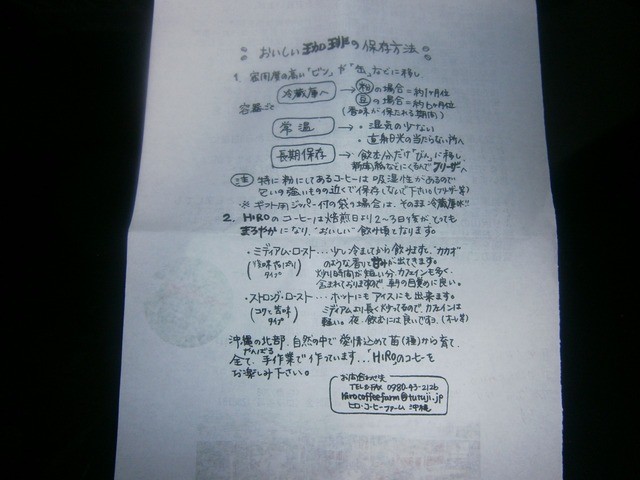 おいしい珈琲の保存方法
1. 密閉度の高い「ビン」か「缶」などに移し
容器ごと
冷蔵庫へ → 粉の場合=約1ヶ月位
豆の場合=約2ヶ月位
(香味が保たれる期間)
常温 → ・湿気の少ない
・直射日光の当たらない所へ
長期保存 → 飲む分だけ「びん」に移し、
新聞紙などにくるんでフリーザーへ
注 特に粉にしてあるコーヒーは吸湿性があるので
匂いの強いものの近くで保存しないで下さい。(フリーザー等)
※ギフト用ジッパー付の袋の場合は、そのまま冷蔵庫へ!!
2. HIROのコーヒーは焙煎日より2~3日後が、とっても
まろやかになり、"おいしい"飲み頃となります。
・ミディアム・ロースト…少し冷ましてから飲みますと、"カカオ"
のような香りと甘みが出てきます。
タイプ
炒り時間が短い分、カフェインも多く
含まれておりますので、朝の目覚めに良い。
・ストロング・ロースト…ホットにもアイスにも出来ます。
(コクと苦味
タイプ)
ミディアムより長く炒ってるので、カフェインは
軽い。夜、飲むには良いですョ。
沖縄の北部、自然の中で愛情込めて苗(種)から育て、
やんばる
全て、手作業で作っています…!HIROのコーヒーを
お楽しみ下さい。
お問合わせ先
TEL&FAX 0980-43-2126
hirocoffeefarm@tutuji.jp
ヒロ・コーヒーファーム 沖縄